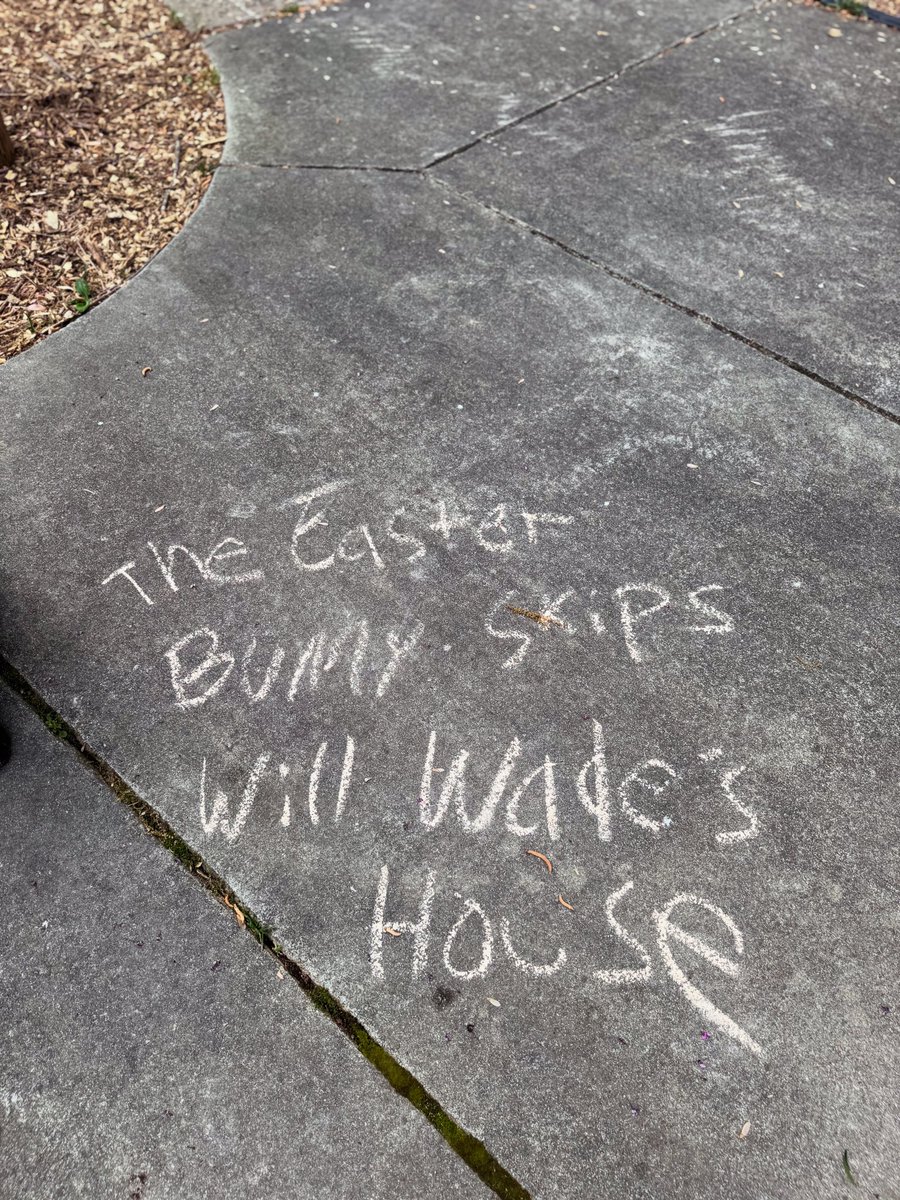 The Easter
Bunny skips
Will Wade's
House